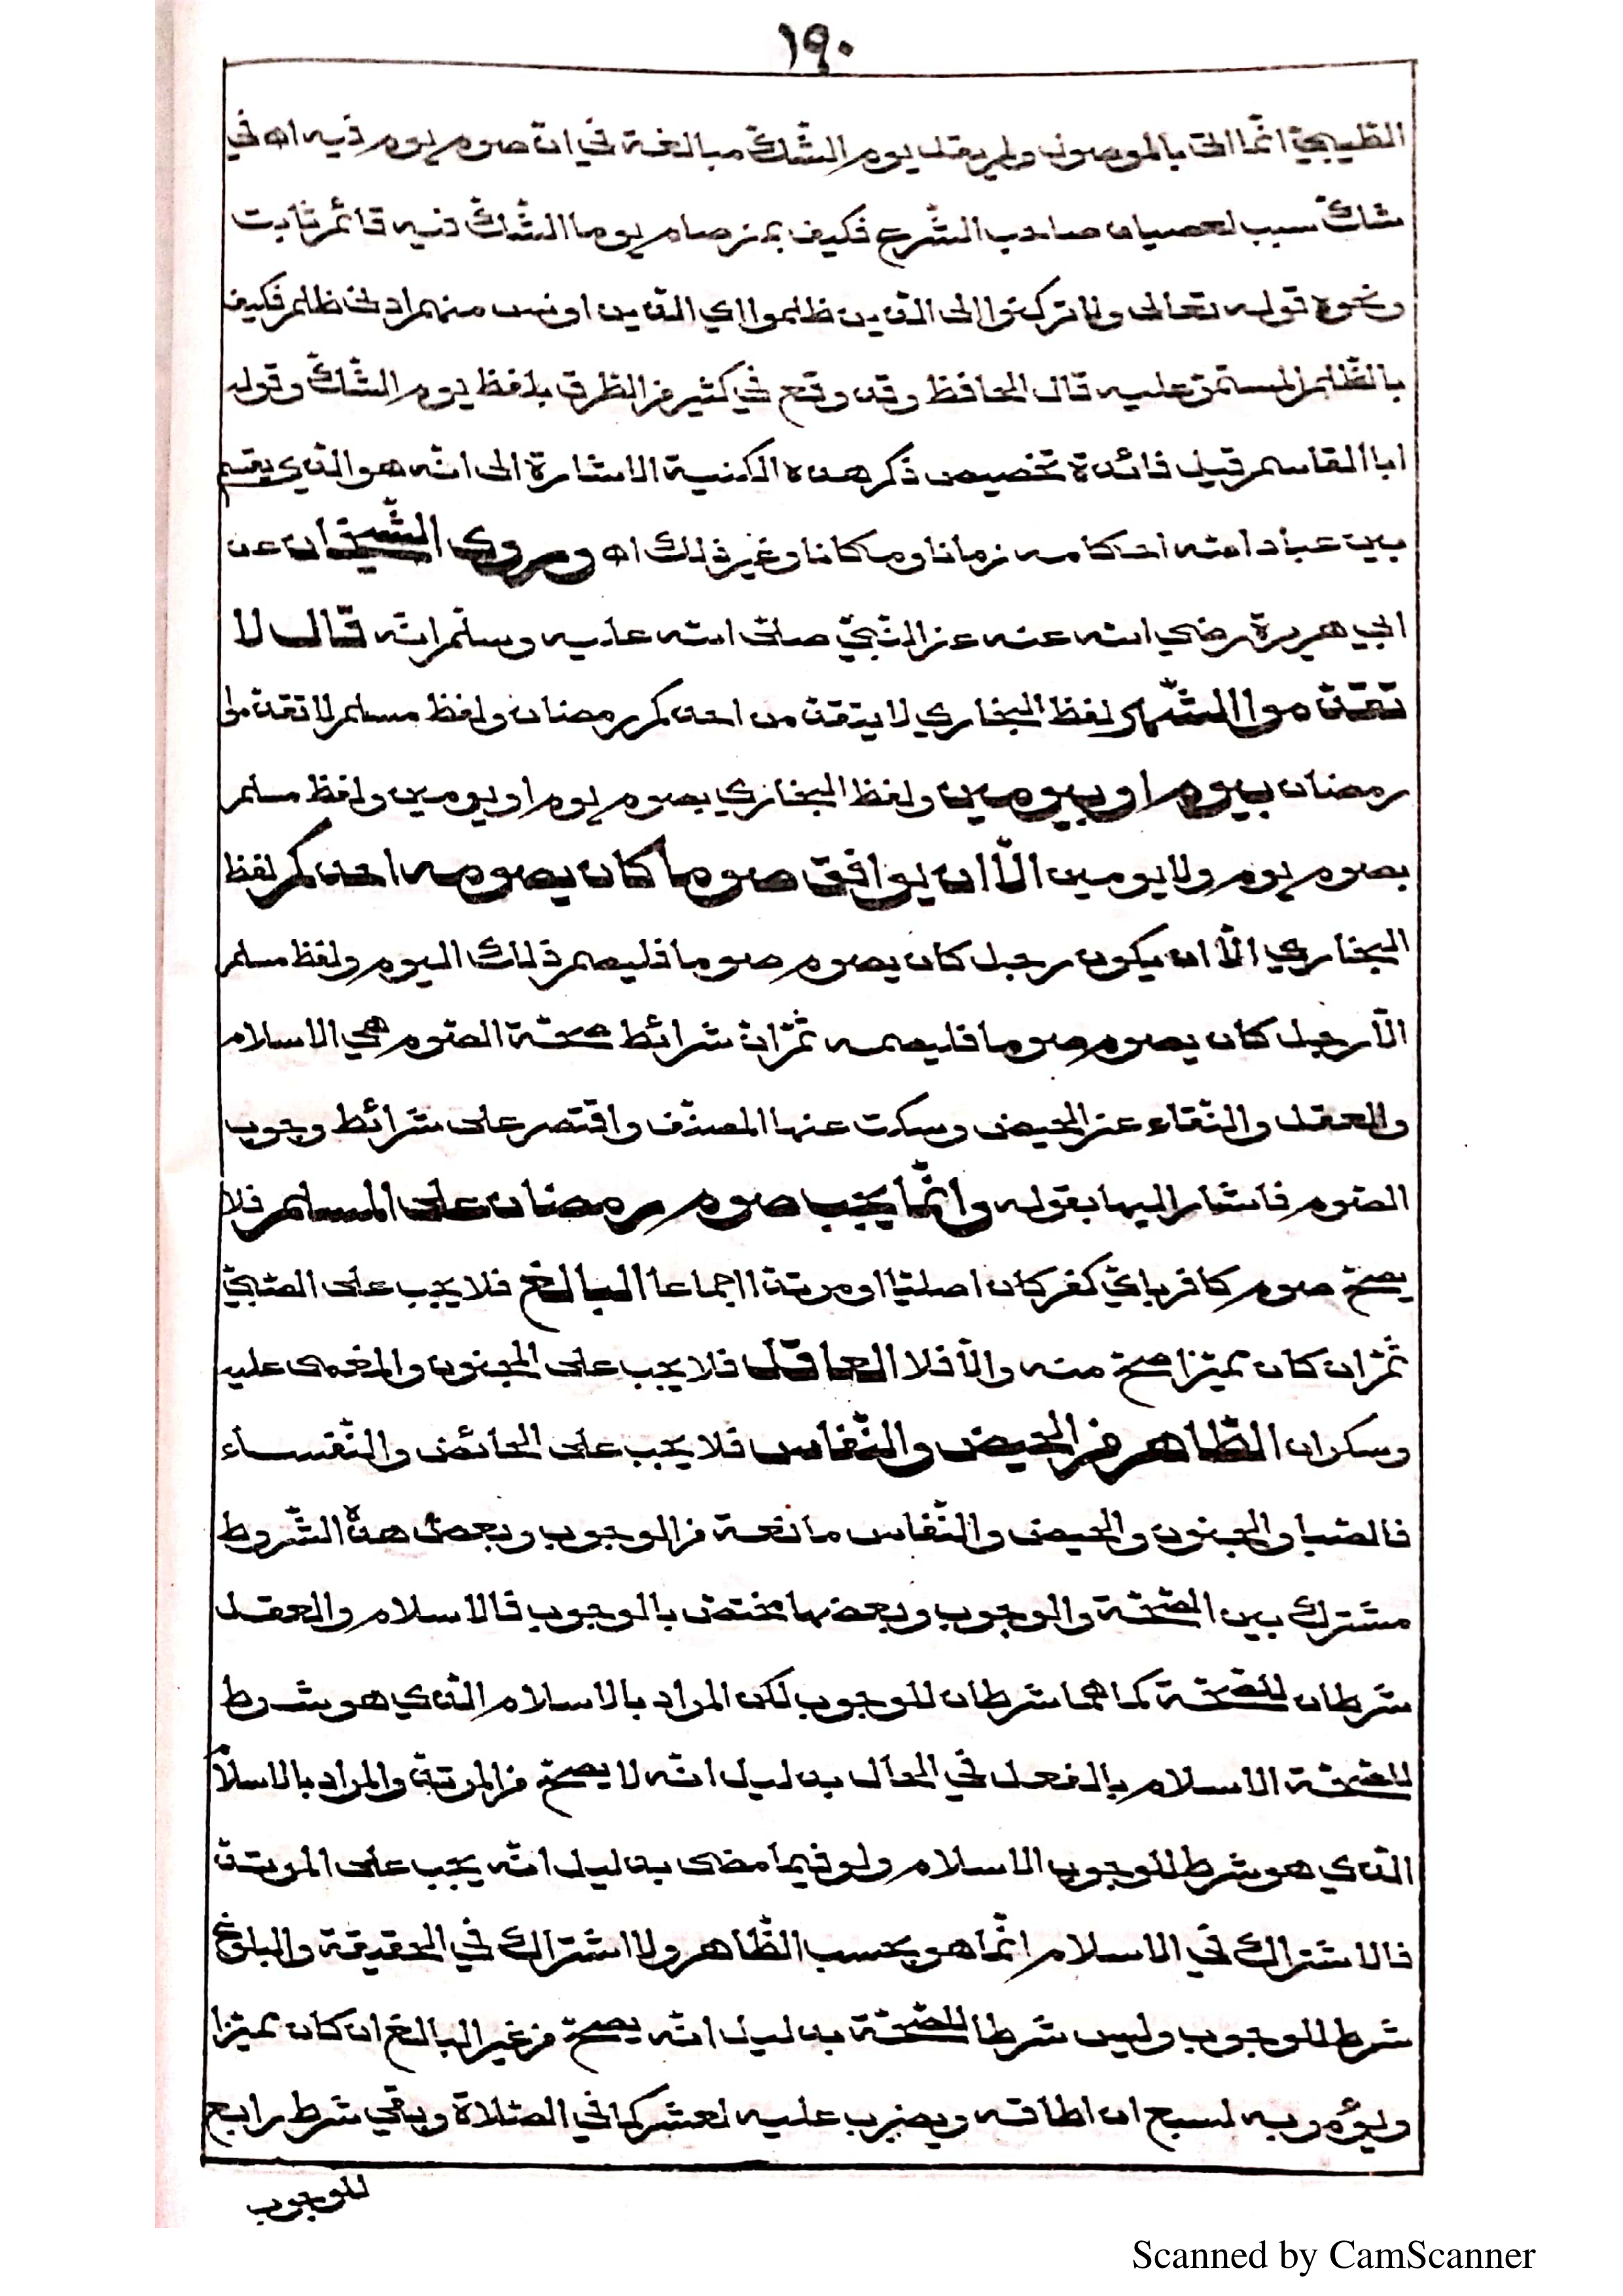 ١٩٠
الطيبي انّما اتى بالموصول ولم يقل يوم الشّكّ مبالغة في انّ صوم يوم فيه اه في
شكّ سبب لعصيان صاحب الشّرع فكيف بمن صام يوما الشّكّ فيه قائم ثابت
ونحوه قوله تعالى ولا تركنوا الى الّذين ظلموا اي الّذين اونس منهم ادنى ظلم فكيف
بالظّلم المستمرّ عليه قال الحافظ وقد وقع في كثير من الطرق بلفظ يوم الشّكّ وقوله
ابا القاسم قيل فائدة تخصيص ذكر هذه الكنية الاشارة الى انّه هو الّذي يقسم
بين عباد الله احكامه زمانا ومكانا وغير ذلك اه وروى الشّيخان عن
ابي هريرة رضي الله عنه عن النّبيّ صلّى الله عليه وسلّم انّه قال لا
تقدّموا الشّهر لفظ البخاري لا يتقدّمن احدكم رمضان ولفظ مسلم لا تقدّموا
رمضان بيوم او بيومين ولفظ البخاري بصوم يوم او يومين ولفظ مسلم
بصوم يوم ولا يومين الّا ان يوافق صوما كان يصومه احدكم لفظ
البخاري الّا ان يكون رجل كان يصوم صوما فليصم ذلك اليوم ولفظ مسلم
الّا رجل كان يصوم صوما فليصمه ثمّ انّ شرائط صحّة الصّوم هي الاسلام
والعقل والنّقاء عن الحيض وسكت عنها المصنّف واقتصر على شرائط وجوب
الصّوم فاشار اليها بقوله وانّما يجب صوم رمضان على المسلم فلا
يصحّ صوم كافر بايّ كفر كان اصليّا او مرتدّا اجماعا البالغ فلا يجب على الصّبيّ
ثمّ ان كان مميّزا صحّ منه والّا فلا العاقل فلا يجب على المجنون والمغمى عليه
وسكران الطّاهر من الحيض والنّفاس فلا يجب على الحائض والنّفساء
فالصّبا والجنون والحيض والنّفاس مانعة من الوجوب وبعض هذه الشّروط
مشترك بين الصّحّة والوجوب وبعضها مختصّ بالوجوب فالاسلام والعقل
شرطان للصّحّة كما هما شرطان للوجوب لكن المراد بالاسلام الّذي هو شرط
للصّحّة الاسلام بالفعل في الحال بدليل انّه لا يصحّ من المرتدّ والمراد بالاسلام
الّذي هو شرط للوجوب الاسلام ولو فيما مضى بدليل انّه يجب على المرتدّ
فالاشتراك في الاسلام انّما هو بحسب الظّاهر ولا اشتراك في الحقيقة والبلوغ
شرط للوجوب وليس شرطا للصّحّة بدليل انّه يصحّ من غير البالغ ان كان مميّزا
ويؤمر به لسبع ان اطاقه ويضرب عليه لعشر كما في الصّلاة وبقي شرط رابع
للوجوب
Scanned by CamScanner